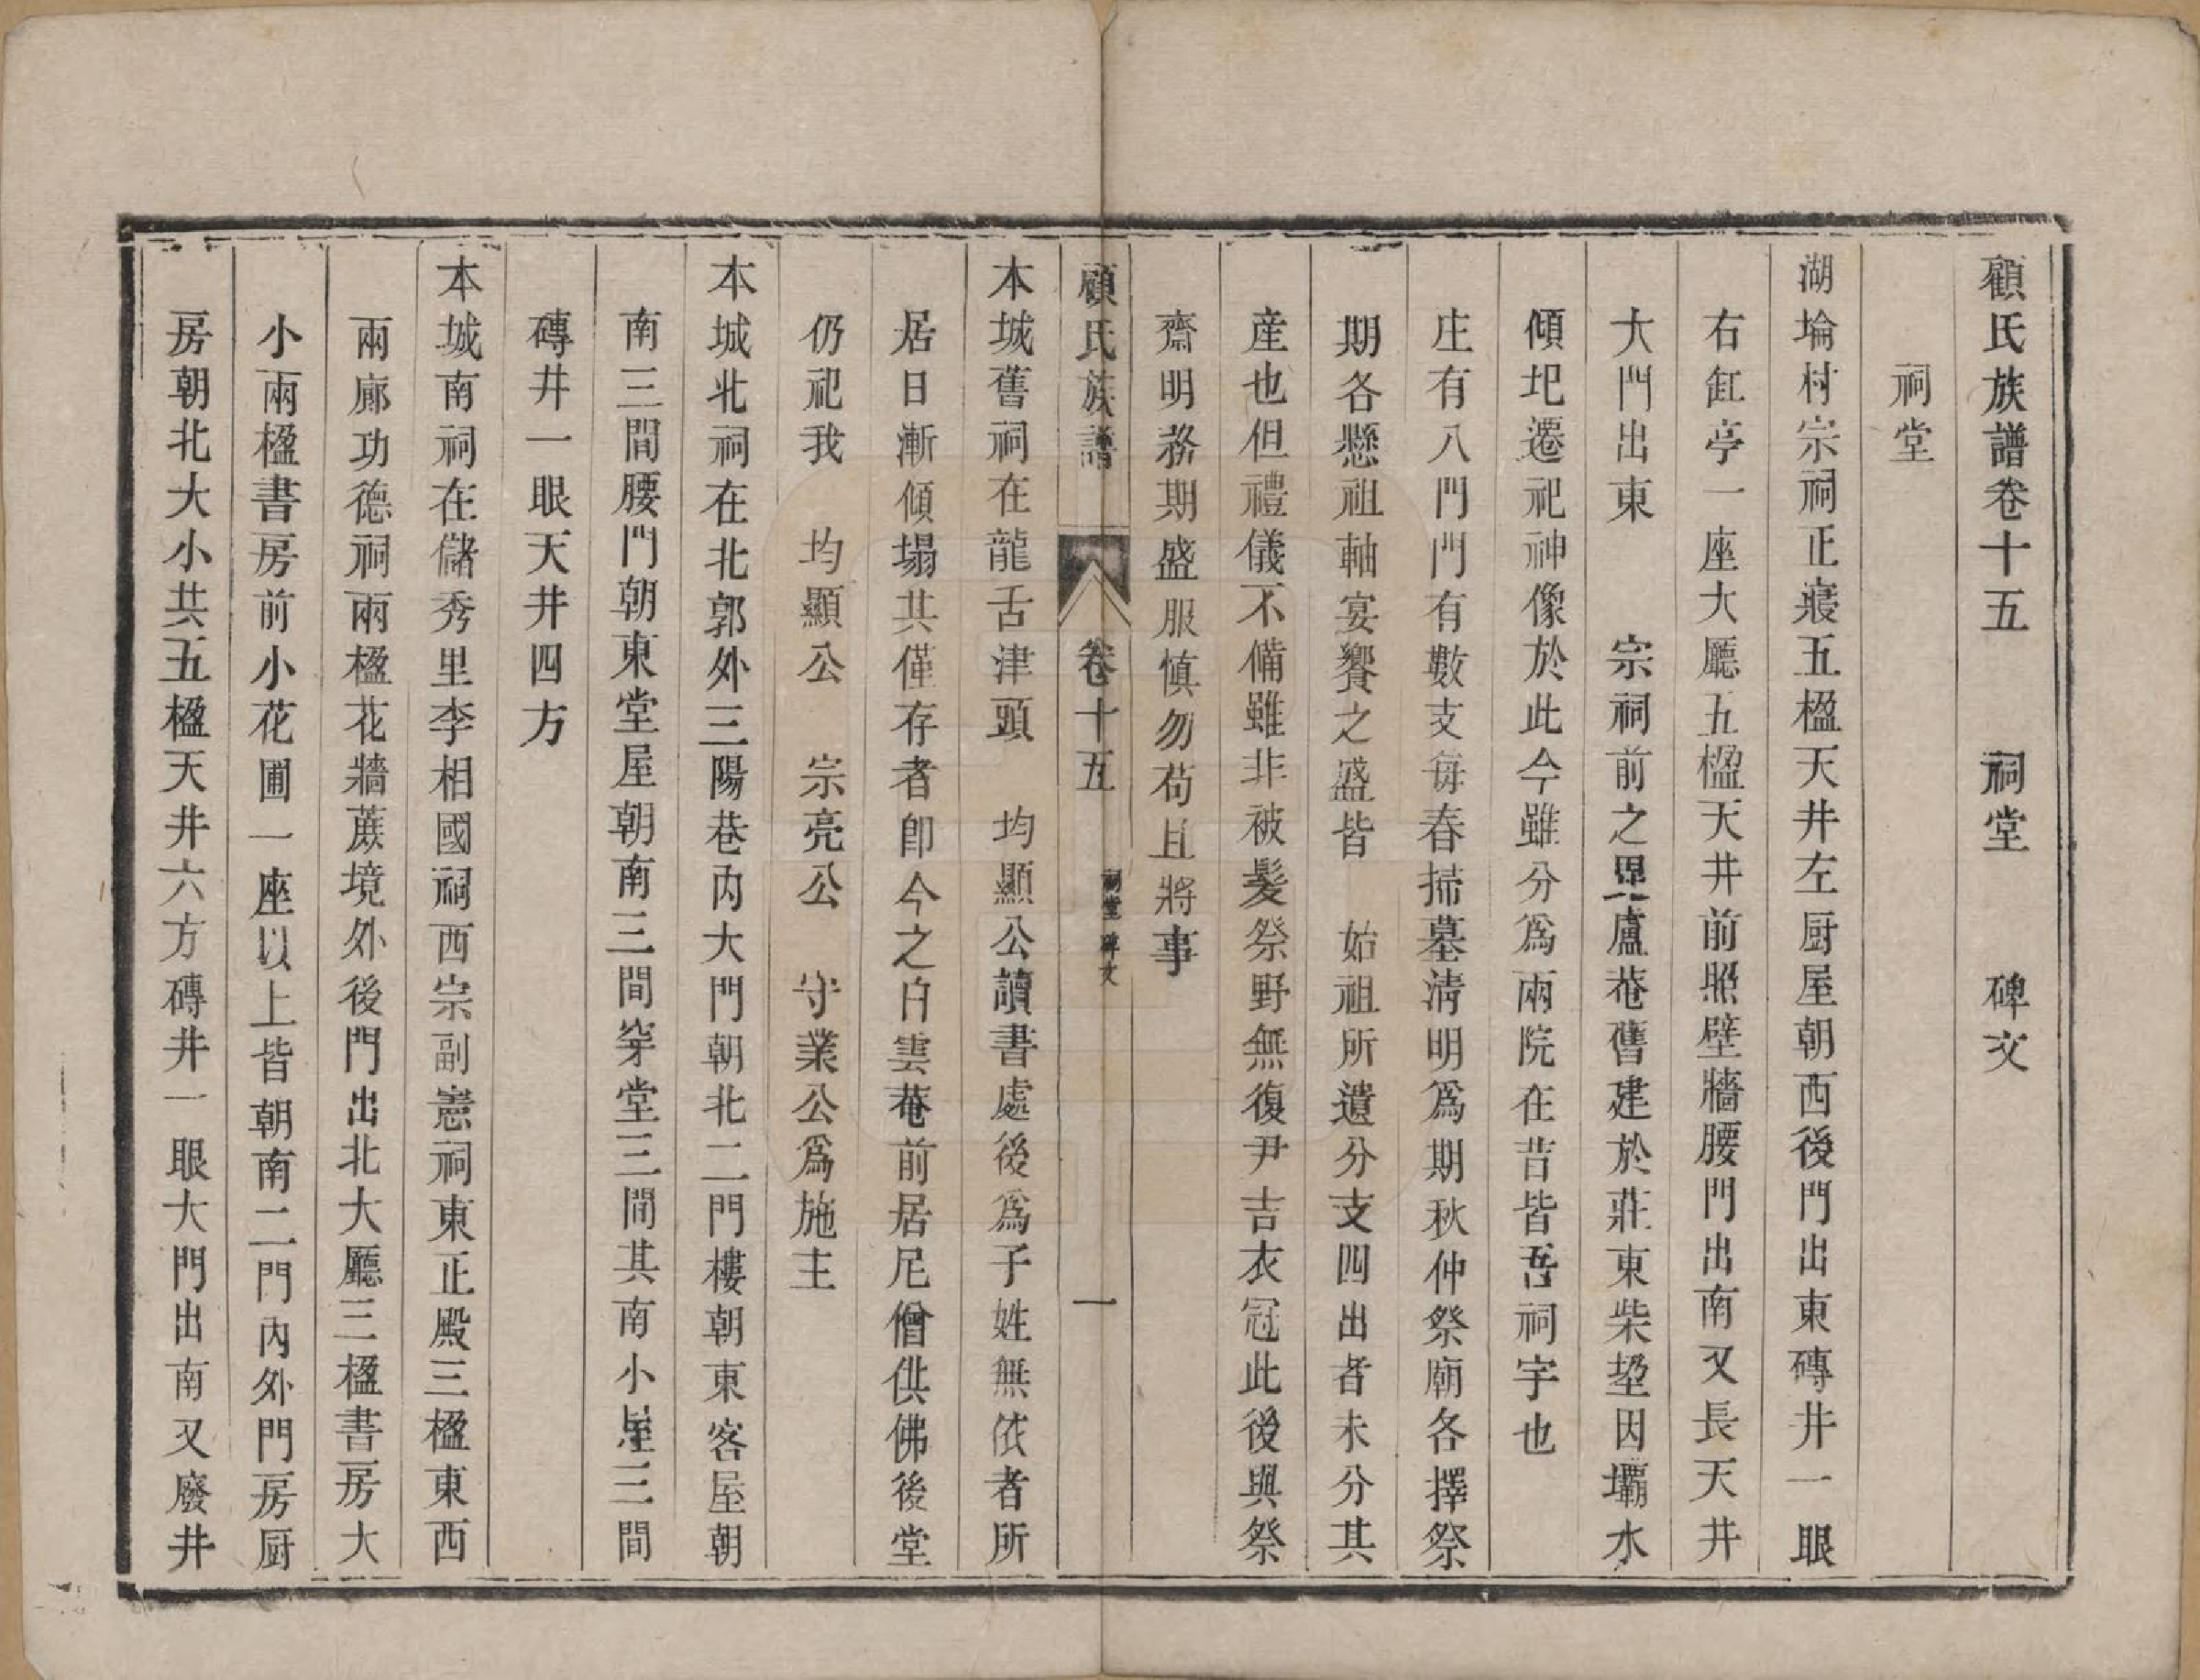 顧氏族譜卷十五　祠堂　碑文
祠堂
湖埨村宗祠正寢五楹天井左厨屋朝西後門出東磚井一眼
右缸亭一座大廳五楹天井前照壁牆腰門出南又長天井
大門出東　宗祠前之思廬菴舊建於莊東柴塋因壩水
傾圯遷祀神像於此今雖分爲兩院在昔皆吾祠宇也
庄有八門門有數支每春掃墓清明爲期秋仲祭廟各擇祭
期各懸祖軸宴饗之盛皆　始祖所遺分支四出者未分其
産也但禮儀不備雖非被髮祭野無復尹吉衣冠此後與祭
齋明務期盛服慎勿苟且將事
顧氏族譜　卷十五　祠堂　碑文　一
本城舊祠在龍舌津頭　均顯公讀書處後爲子姓無依者所
居日漸傾塌其僅存者卽今之白雲菴前居尼僧供佛後堂
仍祀我　均顯公　宗亮公　守業公爲施主
本城北祠在北郭外三陽巷內大門朝北二門樓朝東客屋朝
南三間腰門朝東堂屋朝南三間穿堂三間其南小屋三間
磚井一眼天井四方
本城南祠在儲秀里李相國祠西宗副憲祠東正殿三楹東西
兩廊功德祠兩楹花牆蔗境外後門出北大廳三楹書房大
小兩楹書房前小花圃一座以上皆朝南二門內外門房厨
房朝北大小共五楹天井六方磚井一眼大門出南又廢井